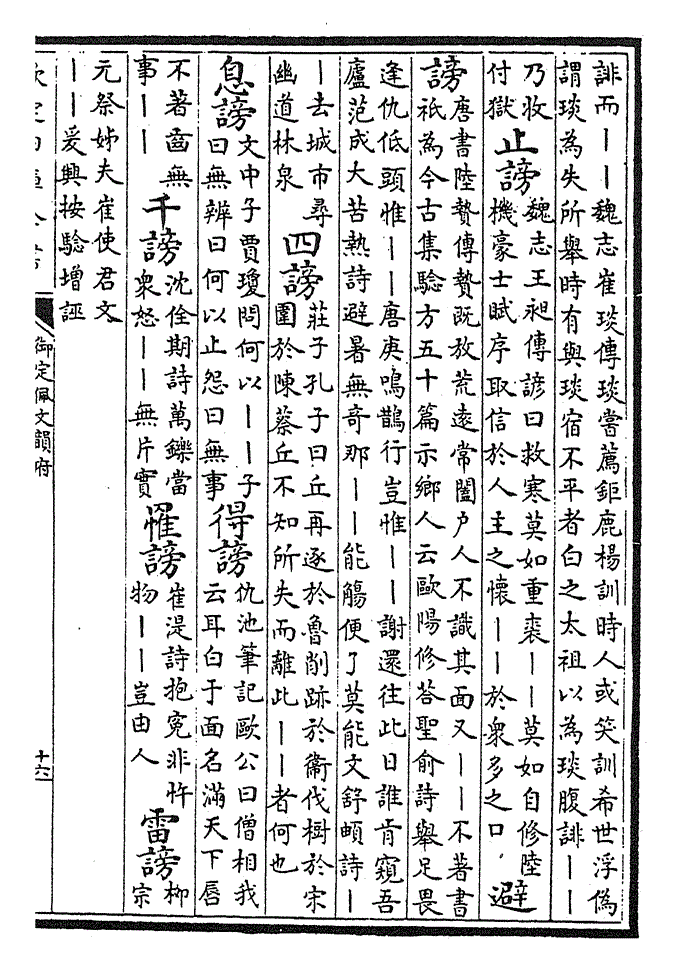 誹而丨丨魏志崔琰傳琰嘗薦鉅鹿楊訓時人或笑訓希世浮偽
謂琰為失所舉時有與琰宿不平者白之太祖以為琰腹誹丨丨
乃收
付獄
止謗
魏志王昶傳諺曰救寒莫如重裘丨丨莫如自修陸
機豪士賦序取信於人主之懷丨丨於衆多之口
避
謗
唐書陸贄傳贄既放荒遠常闔户人不識其面又丨丨不著書
祇為今古集驗方五十篇示鄉人云歐陽修荅聖俞詩舉足畏
逢仇低頭惟丨丨唐庚鳴鵲行豈惟丨丨謝還往此日誰肯窺吾
廬范成大苦熱詩避暑無奇那丨丨能觴便了莫能文舒頔詩丨
丨去城市尋
幽道林泉
四謗
莊子孔子曰丘再逐於魯削跡於衞伐樹於宋
圍於陳蔡丘不知所失而離此丨丨者何也
息謗
文中子賈瓊問何以丨丨子
曰無辨曰何以止怨曰無事
得謗
仇池筆記歐公曰僧相我
云耳白于面名滿天下唇
不著齒無
事丨丨
千謗
沈佺期詩萬鑠當
衆怒丨丨無片實
罹謗
崔湜詩抱寃非忤
物丨丨豈由人
雷謗
柳
宗
元祭姊夫崔使君文
丨丨爰興按驗增誣
欽定四庫全書
御定佩文韻府
十六